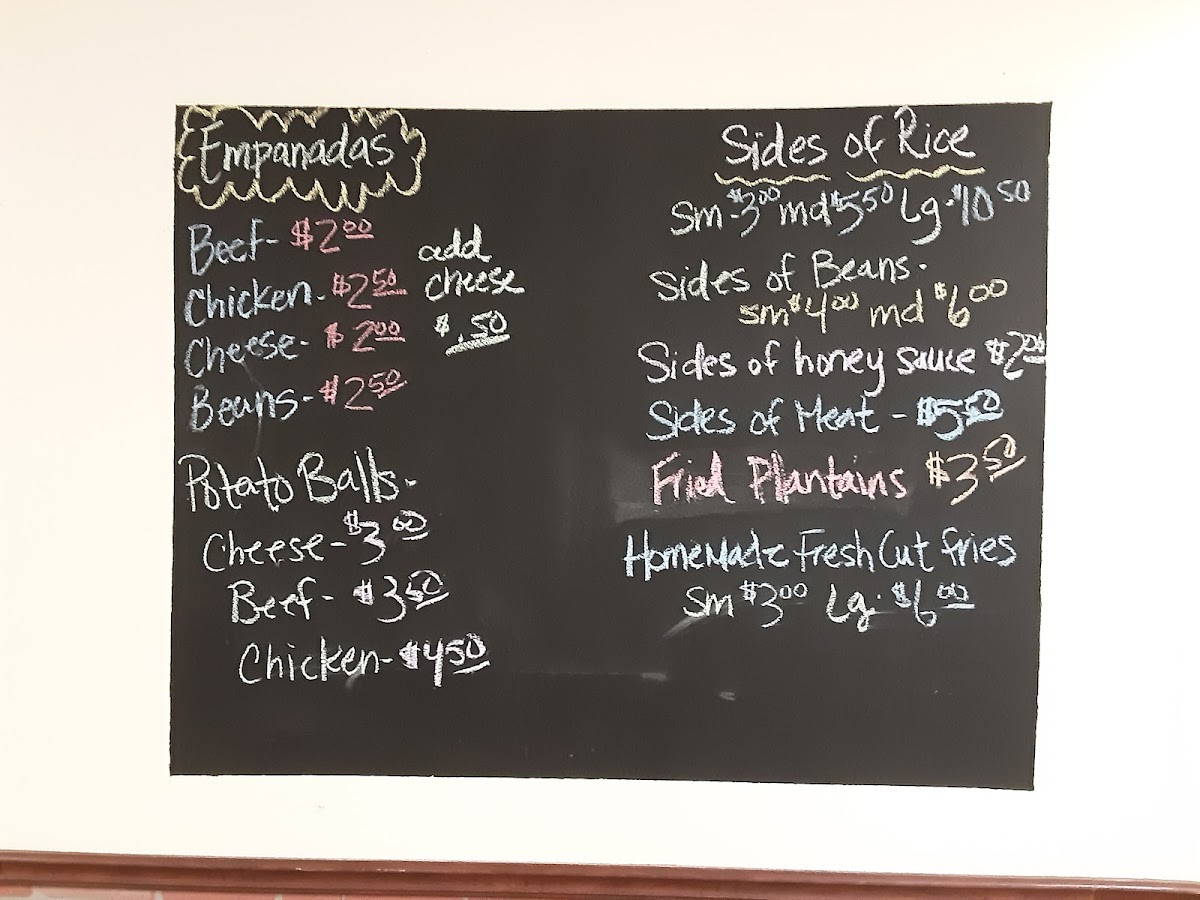 Empanadas
Beef- $2.00
Chicken- $2.50
Cheese- $2.00
Beans- $2.50
add
cheese
$.50
Potato Balls-
Cheese- $3.00
Beef- $3.50
Chicken- $4.50
Sides of Rice
Sm-$3.00 md $5.50 Lg-$10.50
Sides of Beans-
sm $4.00 md $6.00
Sides of honey sauce $2.00
Sides of Meat - $5.50
Fried Plantains $3.50
HomeMade Fresh Cut fries
Sm $3.00 Lg. $6.00